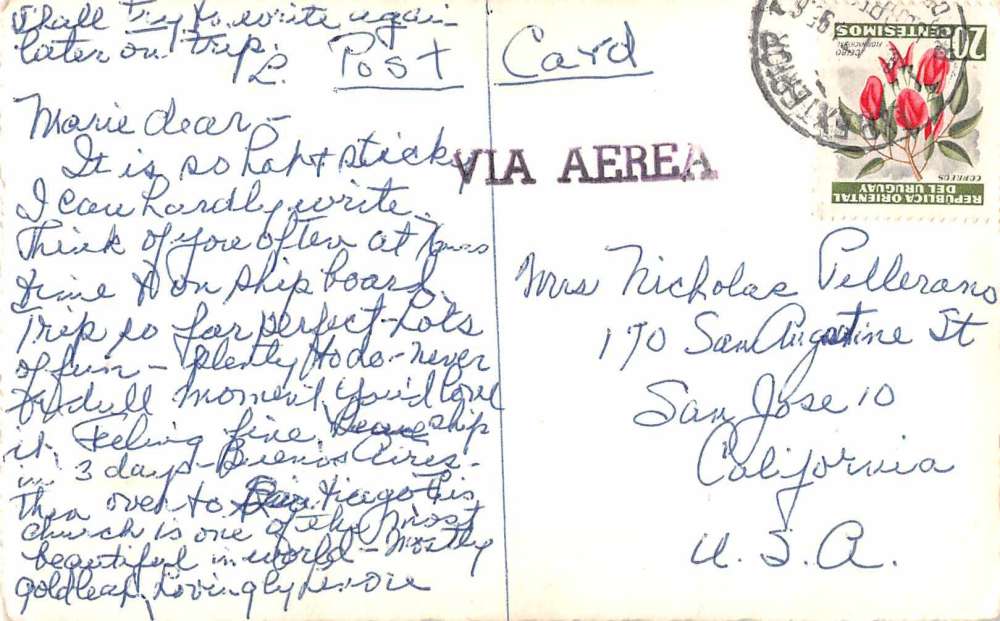 Shall try to write again
later on trip.
L.
Post Card
Marie dear -
It is so hot & sticky
I can hardly write.
Think of you often at
time & on ship board.
Trip so far perfect - Lots
of fun - plenty to do - never
dull moment. You'd love
it. Feeling fine. Leave ship
in 3 days - Buenos Aires -
Then over to Santiago This
church is one of the most
beautiful in world - mostly
goldleaf. Lovingly
VIA AEREA
EXTERIOR
20
CENTESIMOS
CORREOS
REPUBLICA ORIENTAL
DEL URUGUAY
Mrs Nicholas Pellerano
170 San Augustine St
San Jose 10
California
U. S. A.